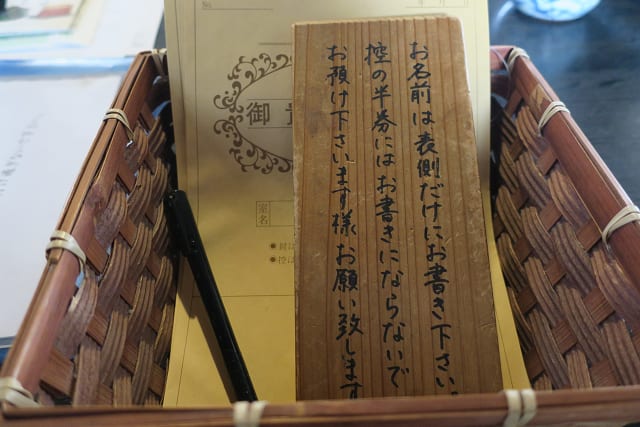 No.
年 月
御 貴
室名
●封は
●控は
お名前は表側だけにお書き下さい。
控の半券にはお書きにならないで
お預け下さいます様お願い致します